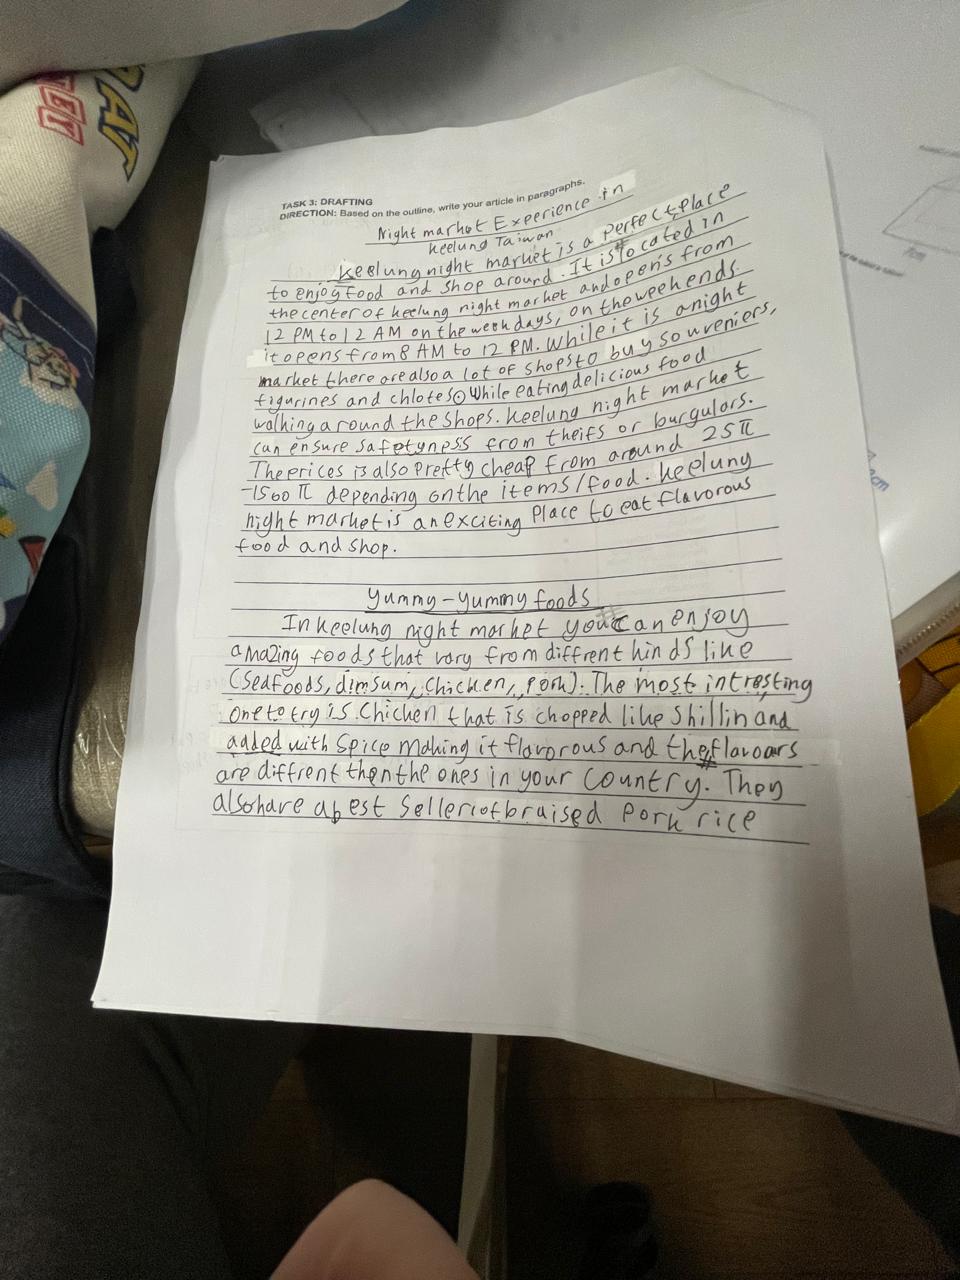 RAT
NEY
TASK 3: DRAFTING
DIRECTION: Based on the outline, write your article in paragraphs.
Night market Experience in
keelung Taiwan
keelung night market is a perfect place
to enjoy food and shop around. It is located in
the center of keelung night market and opens from
12 PM to 12 AM on the week days, on the weekends
it opens from 8 AM to 12 PM. While it is a night
market there are also a lot of shops to buy souveniers,
figurines and chlotes. While eating delicious food
walking around the shops. keelung night market
can ensure safetyness from theifs or burgulors.
The prices is also pretty cheap from around 25元
-1500元 depending on the items/food. keelung
night market is an exciting place to eat flavorous
food and shop.
yummy-yummy foods
In keelung night market you can enjoy
amazing foods that vary from diffrent kinds like
(seafoods, dimsum, chicken, pork). The most intresting
one to try is chicken that is chopped like shillin and
added with spice making it flavorous and the flavours
are diffrent then the ones in your country. They
also have a best seller of braised pork rice
cm